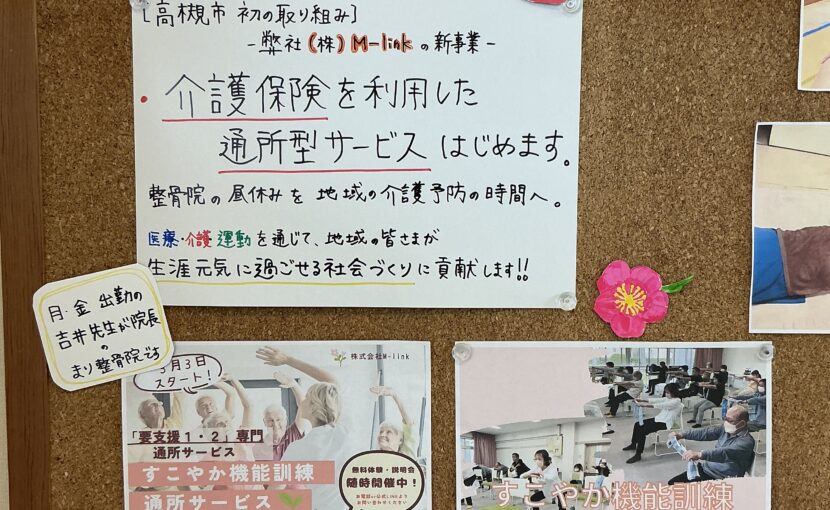 [高槻市 初の取り組み]
-弊社(株)M-linkの新事業-
・介護保険を利用した
通所型サービスはじめます。
整骨院の昼休みを地域の介護予防の時間へ。
医療・介護 運動を通じて、地域の皆さまが
生涯元気に過ごせる社会づくりに貢献します!!
月・金 出勤の
吉井先生が院長
の
まり整骨院です
3月3日
スタート!
株式会社M-link
「要支援1・2」専門
通所サービス
すこやか機能訓練
通所サービス
無料体験・説明会
随時開催中!
お電話or公式LINEより
お問い合わせください
すこやか機能訓練